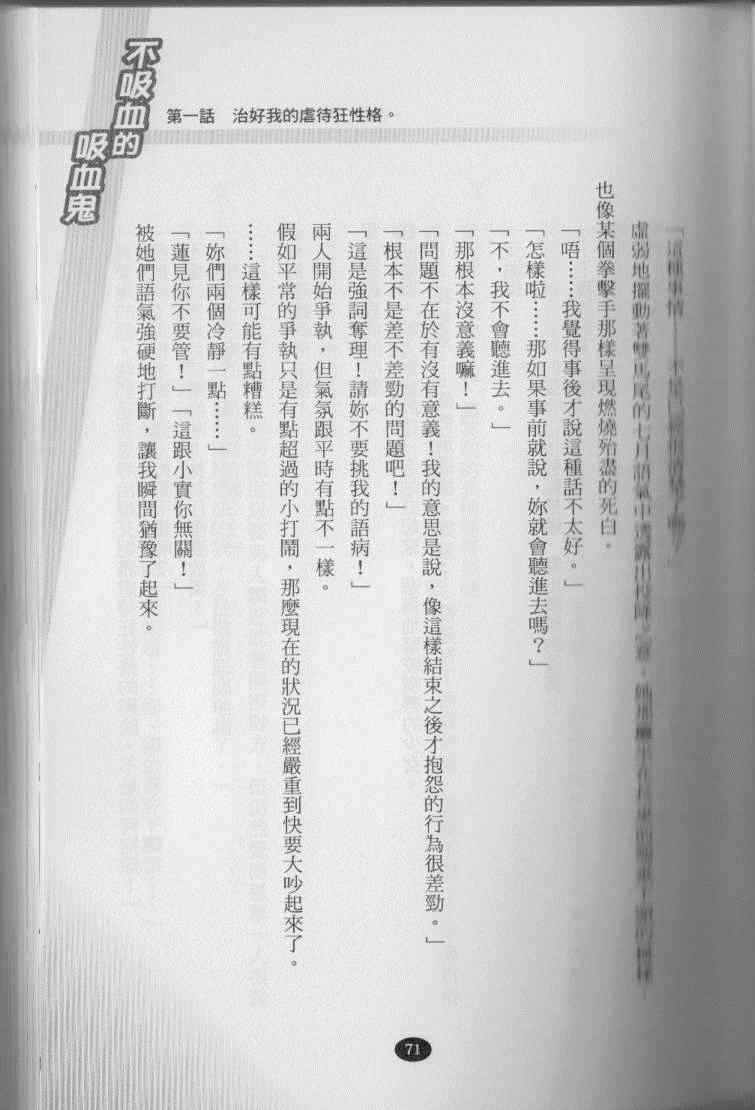 不吸血的
吸血鬼
第一話　治好我的虐待狂性格。
「這種事情
虛弱地擺動著雙馬尾的七月語氣中透露出
也像某個拳擊手那樣呈現燃燒殆盡的死白。
「唔……我覺得事後才說這種話不太好。」
「怎樣啦……那如果事前就說，妳就會聽進去嗎？」
「不，我不會聽進去。」
「那根本沒意義嘛！」
「問題不在於有沒有意義！我的意思是說，像這樣結束之後才抱怨的行為很差勁。」
「根本不是差不差勁的問題吧！」
「這是強詞奪理！請妳不要挑我的語病！」
兩人開始爭執，但氣氛跟平時有點不一樣。
假如平常的爭執只是有點超過的小打鬧，那麼現在的狀況已經嚴重到快要大吵起來了。
……這樣可能有點糟糕。
「妳們兩個冷靜一點……」
「蓮見你不要管！」「這跟小實你無關！」
被她們語氣強硬地打斷，讓我瞬間猶豫了起來。
71